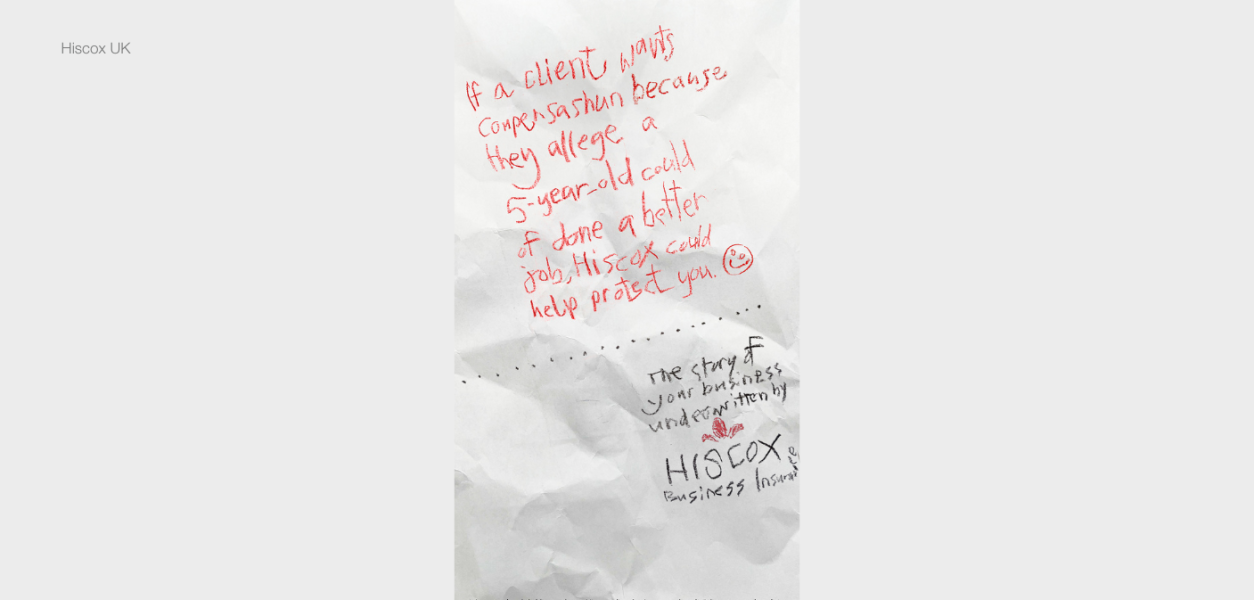 Hiscox UK
If a client wants
compensashun because
they allege a
5-year-old could
of done a better
job, Hiscox could
help protect you.
The story of
your business
underwritten by
HISCOX
Business Insurance